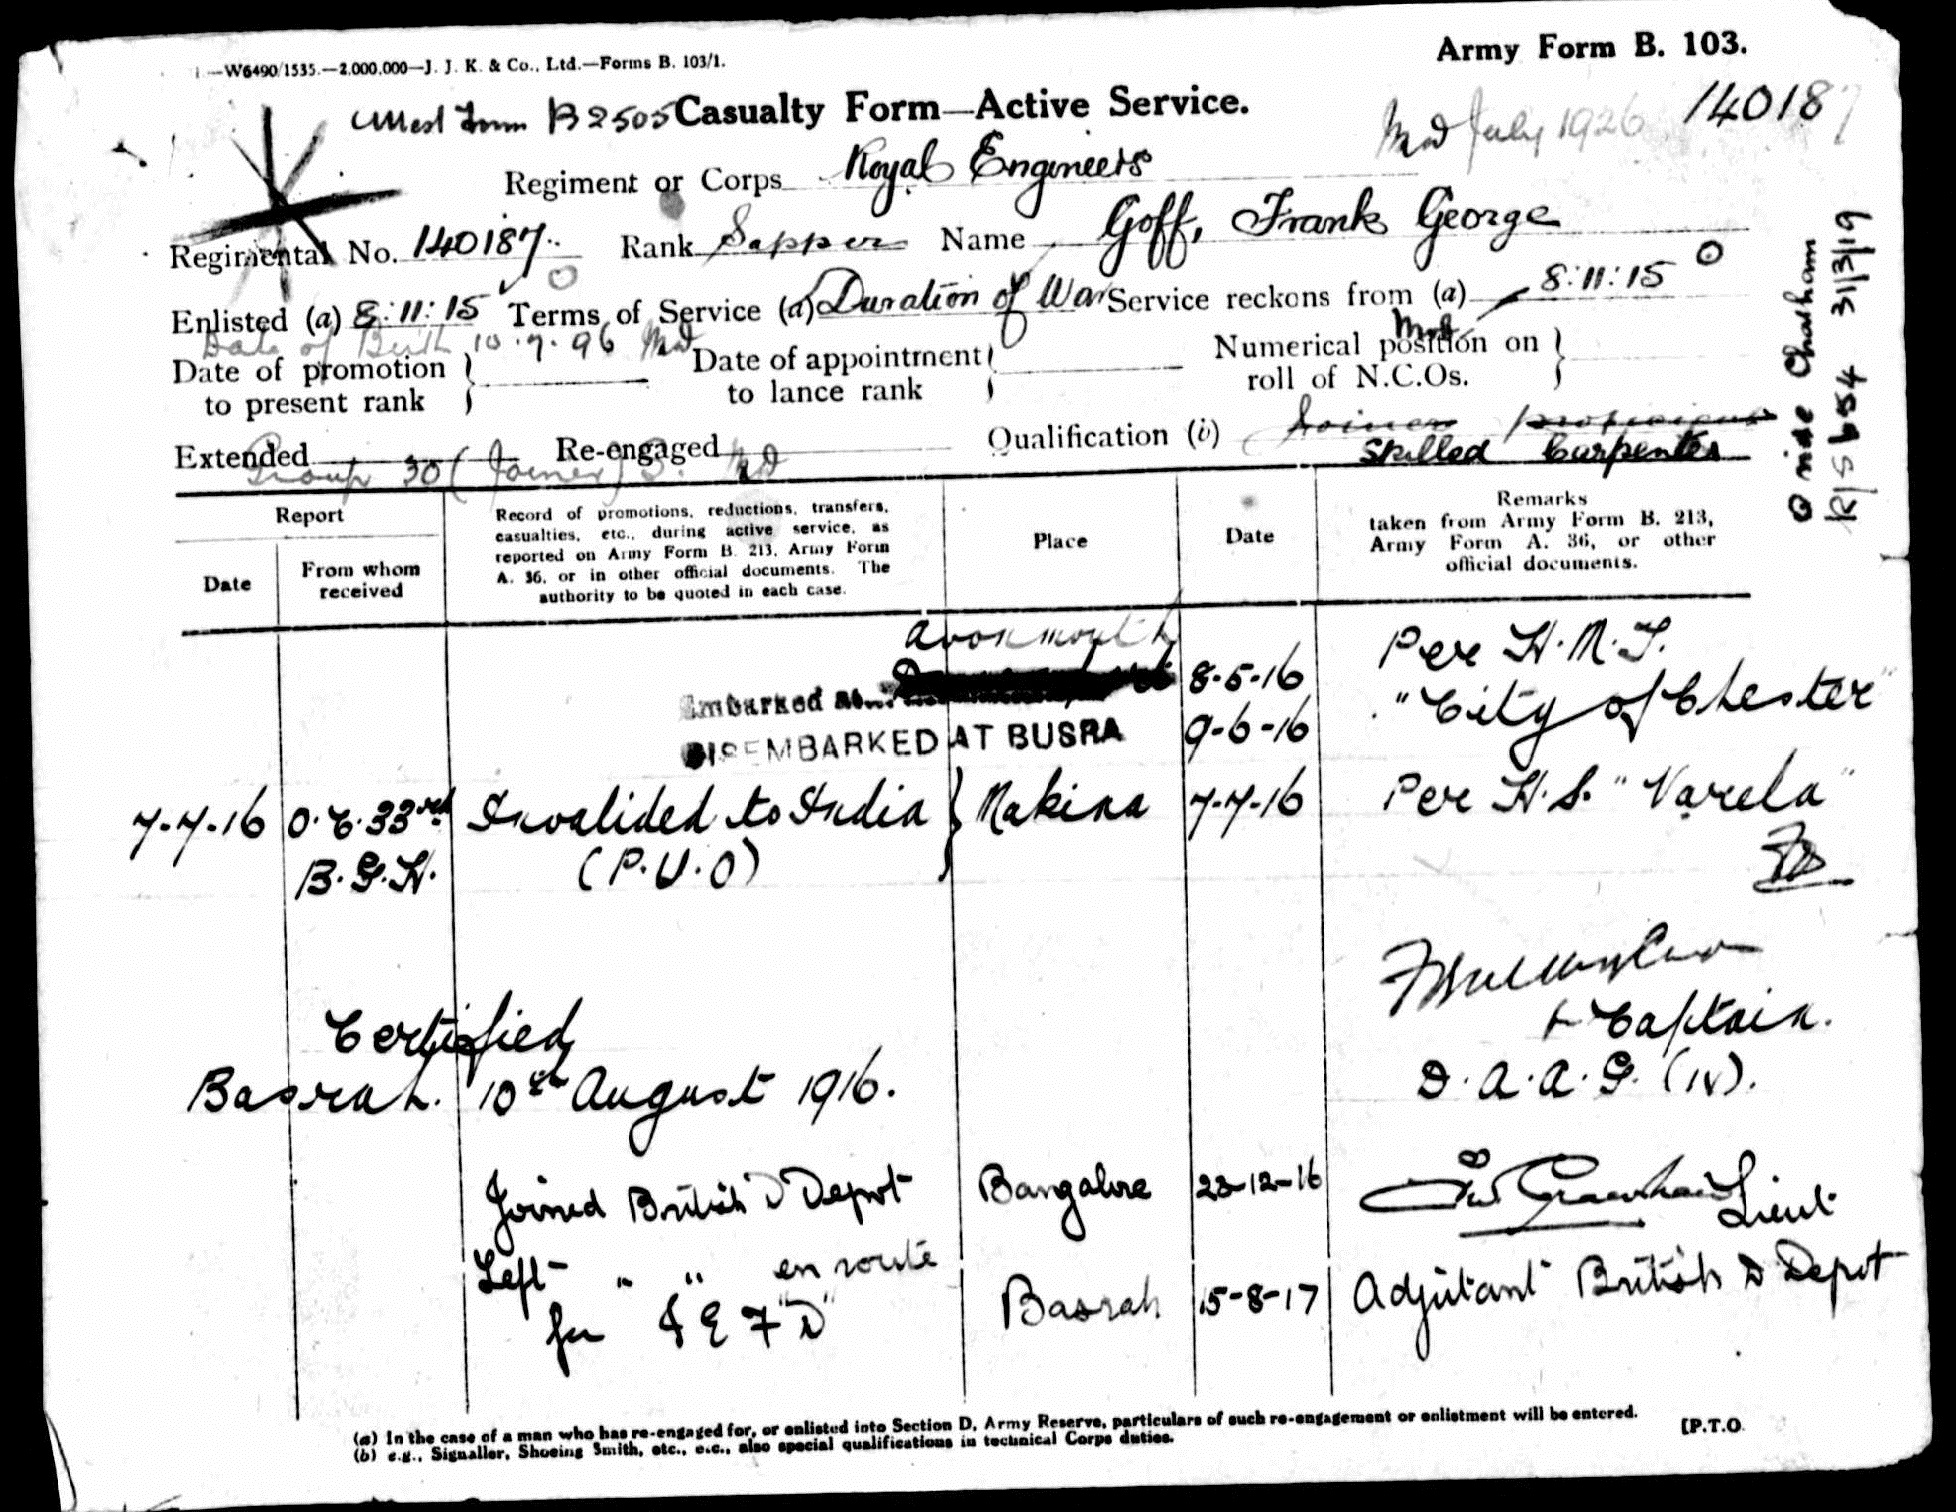 —W6490/1535.—2,000,000—J. J. K. & Co., Ltd.—Forms B. 103/1.
Army Form B. 103.
B 2505 Casualty Form—Active Service.
July 1926 140187
Regiment or Corps Royal Engineers
Regimental No. 140187 Rank Sapper Name Goff, Frank George
Enlisted (a) 8:11:15 Terms of Service (a) Duration of War Service reckons from (a) 8:11:15
Date of Birth 10.7.96
Date of promotion to present rank
Date of appointment to lance rank
Numerical position on roll of N.C.Os.
Extended Re-engaged Qualification (b) Joiner proficient
Group 30 (Joiner) Skilled Carpenter
O nide Chatham
R/S 654 31/3/19
Report
Date
From whom received
Record of promotions, reductions, transfers,
casualties, etc., during active service, as
reported on Army Form B. 213, Army Form
A. 36, or in other official documents. The
authority to be quoted in each case.
Place
Date
Remarks
taken from Army Form B. 213,
Army Form A. 36, or other
official documents.
Avonmouth
Embarked at 8-5-16 Per H.M.T.
"City of Chester"
DISEMBARKED AT BUSRA 9-6-16
7-7-16 O.C. 33rd Invalided to India } Makina 7-7-16 Per H.S. "Varela"
B.G.H. (P.U.O)
Captain.
Certified
Basrah. 10th August 1916. D.A.A.G. (IV).
Joined British D Depot Bangalore 23-12-16 Lieut
Left " " en route
for I E F "D" Basrah 15-8-17 Adjutant British D Depot
(a) In the case of a man who has re-engaged for, or enlisted into Section D, Army Reserve, particulars of such re-engagement or enlistment will be entered.
(b) e.g., Signaller, Shoeing Smith, etc., etc., also special qualifications in technical Corps duties.
[P.T.O.